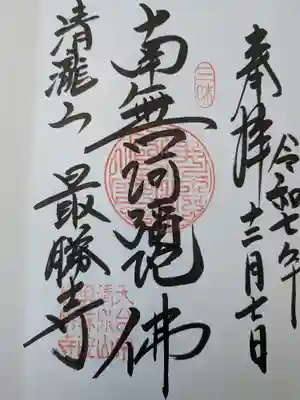 奉拝
令和七年
十二月七日
三味
南無阿弥陀佛
清瀧山
最勝寺